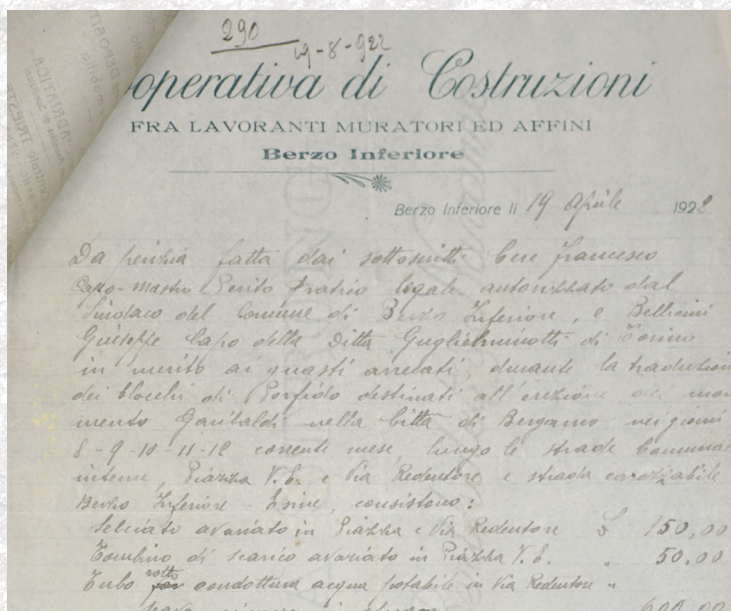 290
19-8-922
operativa di Costruzioni
FRA LAVORANTI MURATORI ED AFFINI
Berzo Inferiore
Berzo Inferiore li 19 Aprile 1922
Da perizia fatta dai sottoscritti Bere Francesco
Capo-mastro Perito Pratrio legale autorizzato dal
Sindaco del Comune di Berzo Inferiore, e Bellicini
Giuseppe Capo della Ditta Guglielminotti di Torino
in merito ai guasti arrecati, durante la traduzion
dei blocchi di Porfido destinati all'erezione del mon
umento Garibaldi nella Città di Bergamo nei giorni
8-9-10-11-12 corrente mese, lungo le strade Comunal
interne, Piazza V.E. e Via Redentore e strada carrozzabile
Berzo Inferiore - Esine, consistono:
Selciato avariato in Piazza e Via Redentore £ 150,00
Tombino di scarico avariato in Piazza V.E. " 50.00
Tubo rotto condottura acqua potabile in Via Redentore "
600,00